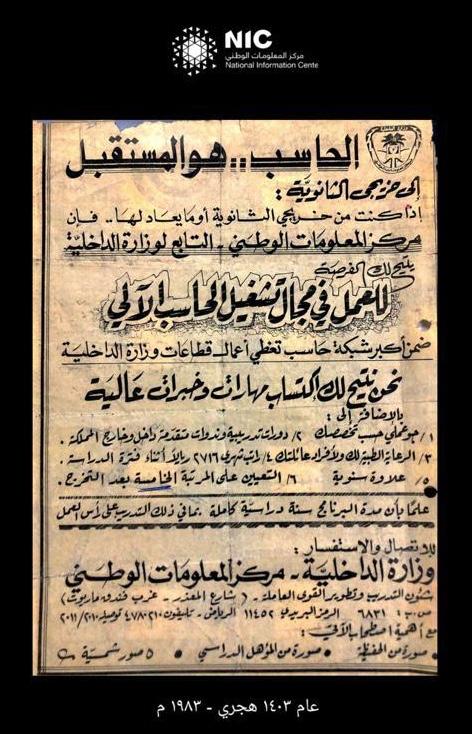 NIC
مركز المعلومات الوطني
National Information Cente
الحاسب .. هو المستقبل
إلى خريجي الثانوية :
إذا كنت من خريجي الثانوية أو ما يعادلها .. فإن
مركز المعلومات الوطني - التابع لوزارة الداخلية
يتيح لك الفرصة
للعمل في مجال تشغيل الحاسب الآلي
ضمن أكبر شبكة حاسب تغطي أعمال قطاعات وزارة الداخلية
نحن نتيح لك إكتساب مهارات وخبرات عالية
بالاضافة إلى :
١/ جو عملي حسب تخصصك ٢/ دورات تدريبية وندوات متقدمة داخل وخارج المملكة .
٣/ الرعاية الطبية لك ولأفراد عائلتك ٤/ راتب شهري ٢٧١٦ ريالاً أثناء فترة الدراسة .
٥/ علاوة سنوية ٦/ التعيين على المرتبة الخامسة بعد التخرج .
علماً بأن مدة البرنامج سنة دراسية كاملة بما في ذلك التدريب على رأس العمل
للاتصال والاستفسار :
وزارة الداخلية - مركز المعلومات الوطني
شئون التدريب وتطوير القوى العاملة - ( شارع المعذر - غرب فندق ماريوت )
ص.ب : ٦٨٣١ الرمز البريدي ١١٤٥٢ الرياض - تليفون ٤٧٨٠٢١٠ توصيلة ٢٠١٠/٢٠١١
مع أهمية اصطحاب الآتي :
صورة من الحفيظة • صورة من المؤهل الدراسي • ٥ صور شمسية
عام ١٤٠٣ هجري - ١٩٨٣ م